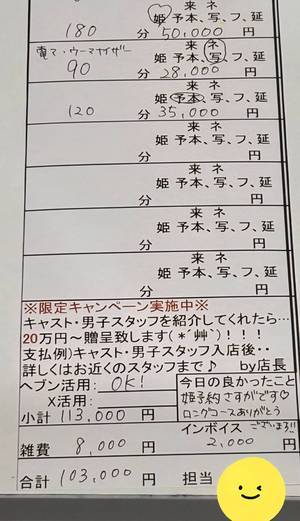 来 ネ
姫 予 本、写、フ、延
180 分 50,000 円
電マ・ウーマナイザー
来 ネ
姫 予 本、写、フ、延
90 分 28,000 円
来 ネ
姫 予 本、写、フ、延
120 分 35,000 円
来 ネ
姫 予 本、写、フ、延
分 円
来 ネ
姫 予 本、写、フ、延
分 円
来 ネ
姫 予 本、写、フ、延
分 円
来 ネ
姫 予 本、写、フ、延
分 円
※限定キャンペーン実施中※
キャスト・男子スタッフを紹介してくれたら…
20万円~贈呈致します(*´艸`)!!!
支払例)キャスト・男子スタッフ入店後・・
詳しくはお近くのスタッフまで♪ by店長
ヘブン活用: OK!
X活用:
小計 113,000 円
今日の良かったこと
姫予約さすがです♡
ロングコースありがとう
ございます!!
雑費 8,000 円
インボイス
2,000 円
合計 103,000 円 担当